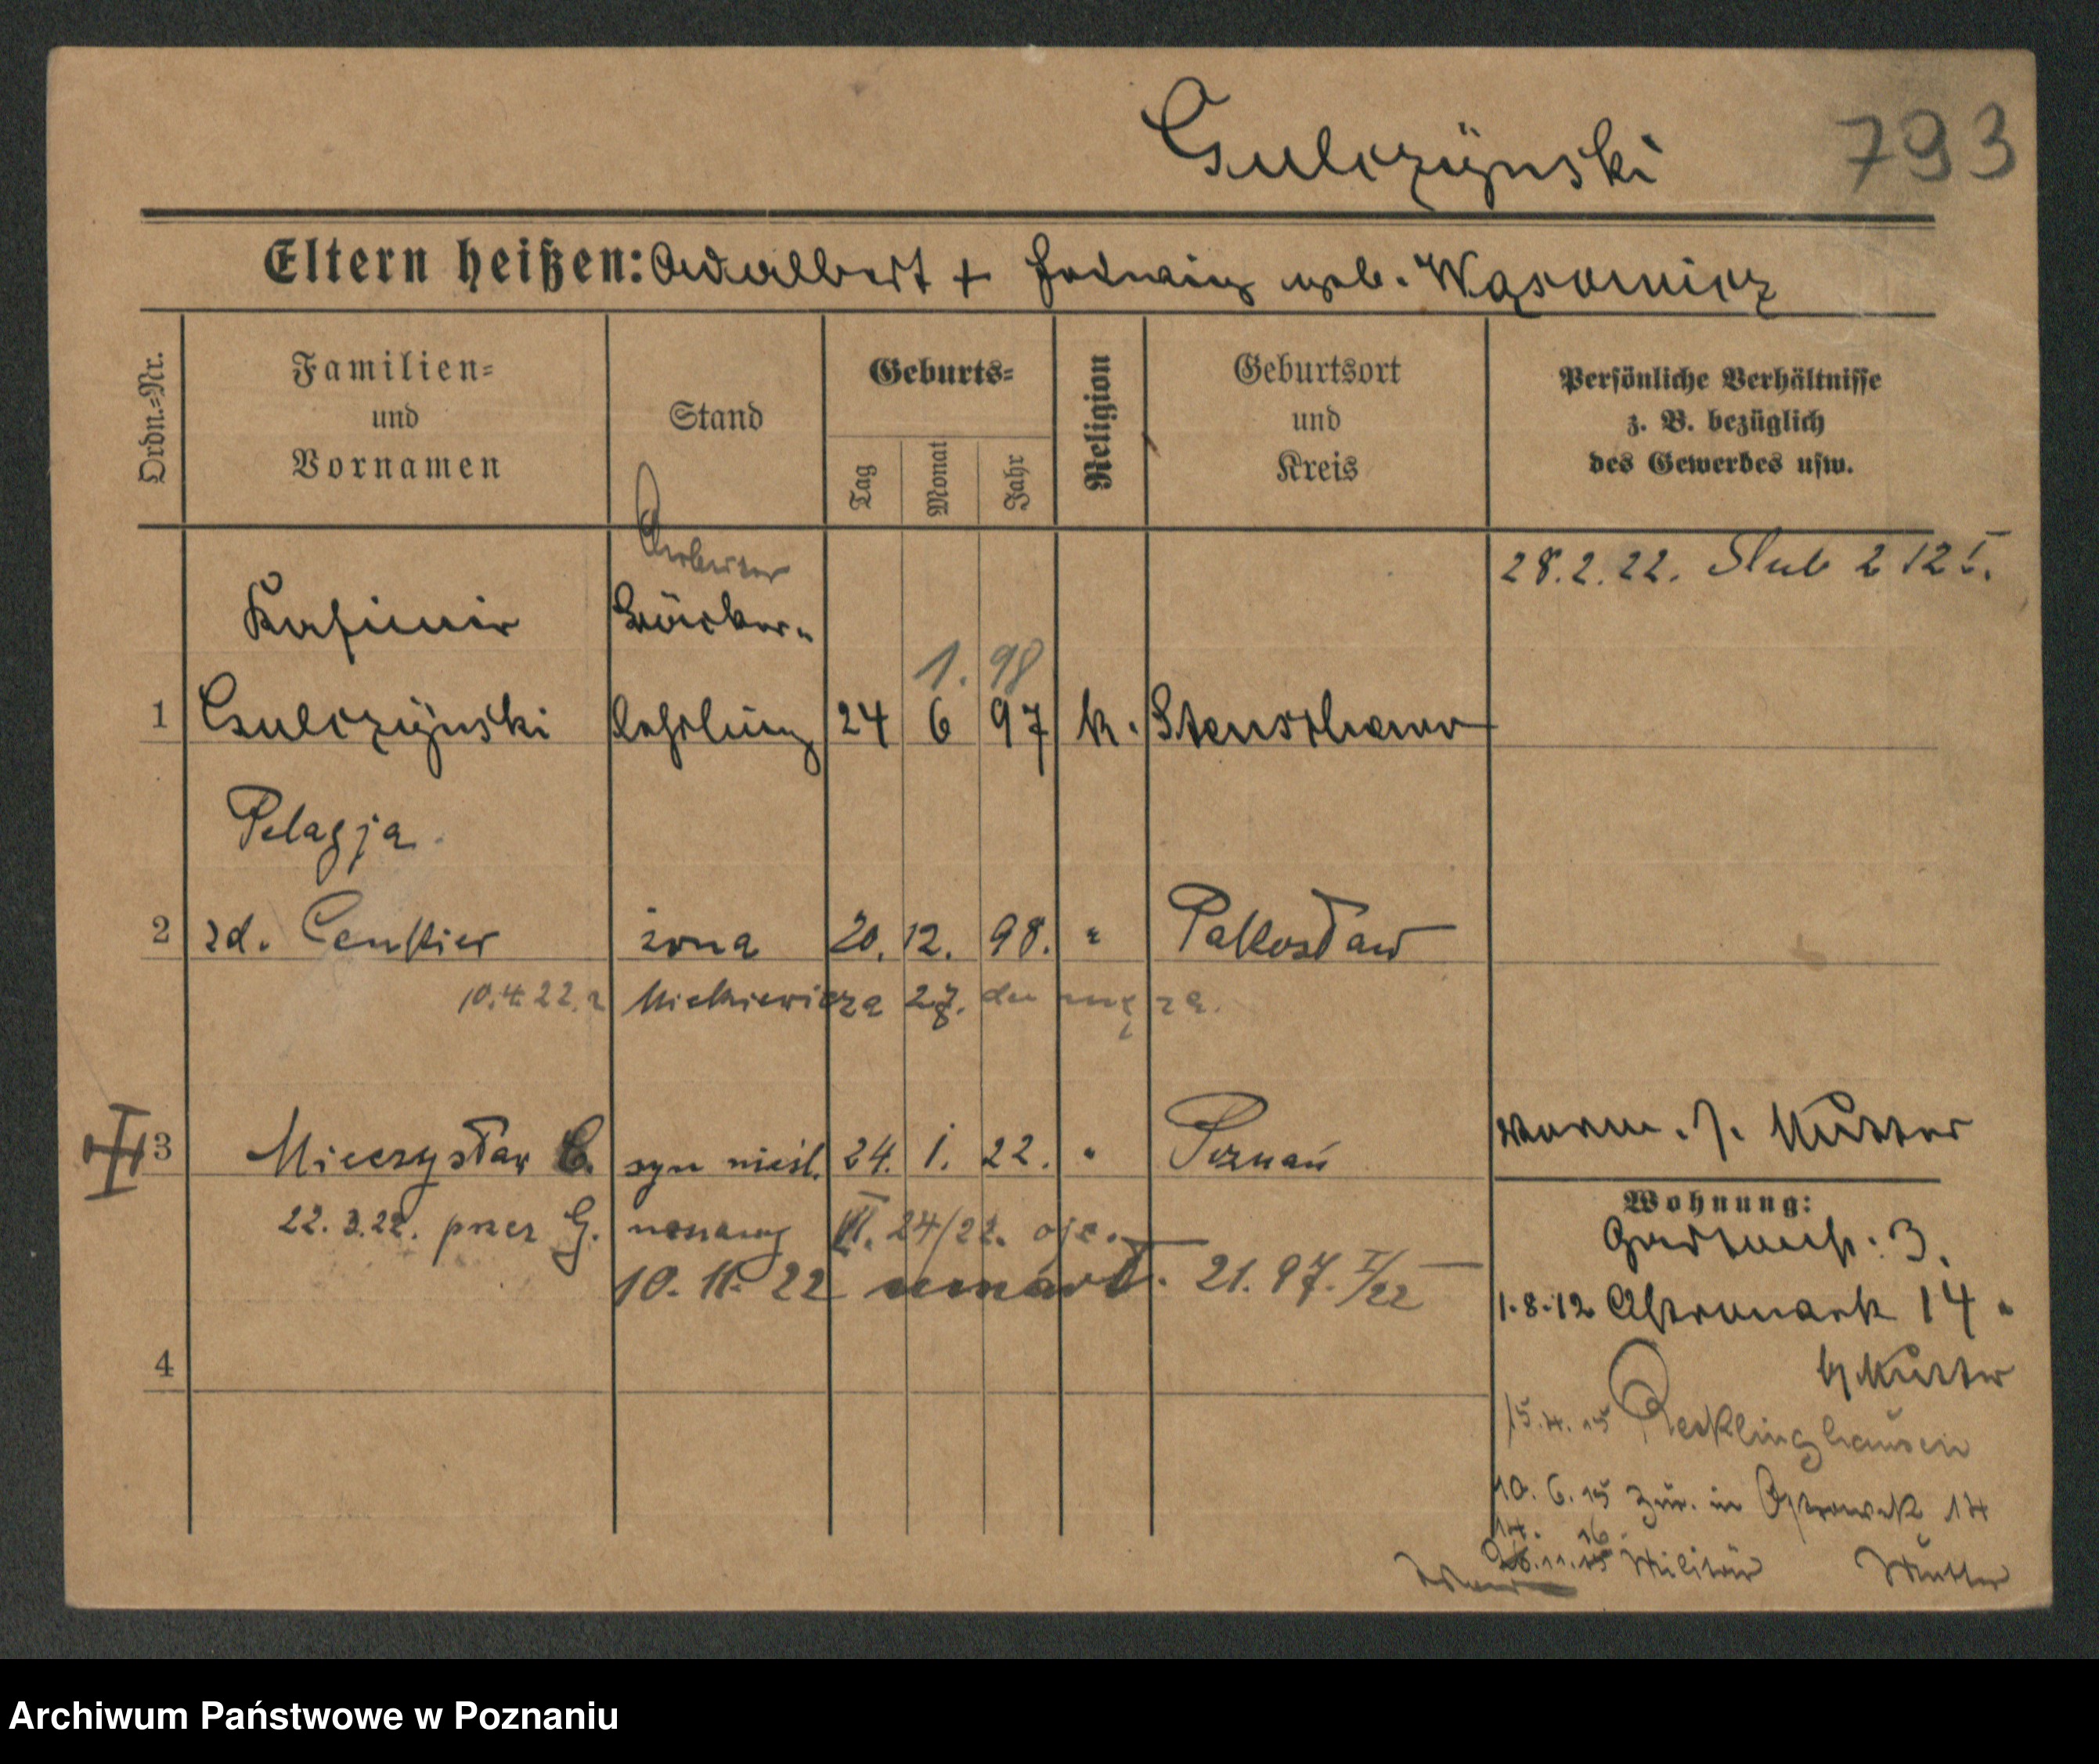 Gulczÿnski
793
Eltern heißen: Adalbert + Hedwig geb. Wąsowicz
Ordn.=Nr.
Familien=
und
Vornamen
Stand
Geburts=
Tag
Monat
Jahr
Religion
Geburtsort
und
Kreis
Persönliche Verhältnisse
z. B. bezüglich
des Gewerbes usw.
28.2.22. Slub 212 I.
Arbeiter
Kasimir
Bäcker-
1. 98
1 Gulczÿnski lehrling 24 6 97 k. Stenschewo
Pelagja
2 zd. żona 20. 12. 98. " Pakosław
10.4.22. z Mickiewicza 27. do męża.
3 Mieczysław G. syn nieśl. 24. 1. 22. " Poznań
22.3.22. przez G. uznany II. 24/22. ojc.
10. 11. 22 umarł. 21. 97. I/22
4
Mutter
Wohnung:
Gartenstr. 3.
1.8.12 Ostrowek 14
b/ Mutter
15.4.15 Recklinghausen
10.6.15 zur. in Ostrowek 14
14. 16.
26.11.15 Militär Mutter
Archiwum Państwowe w Poznaniu